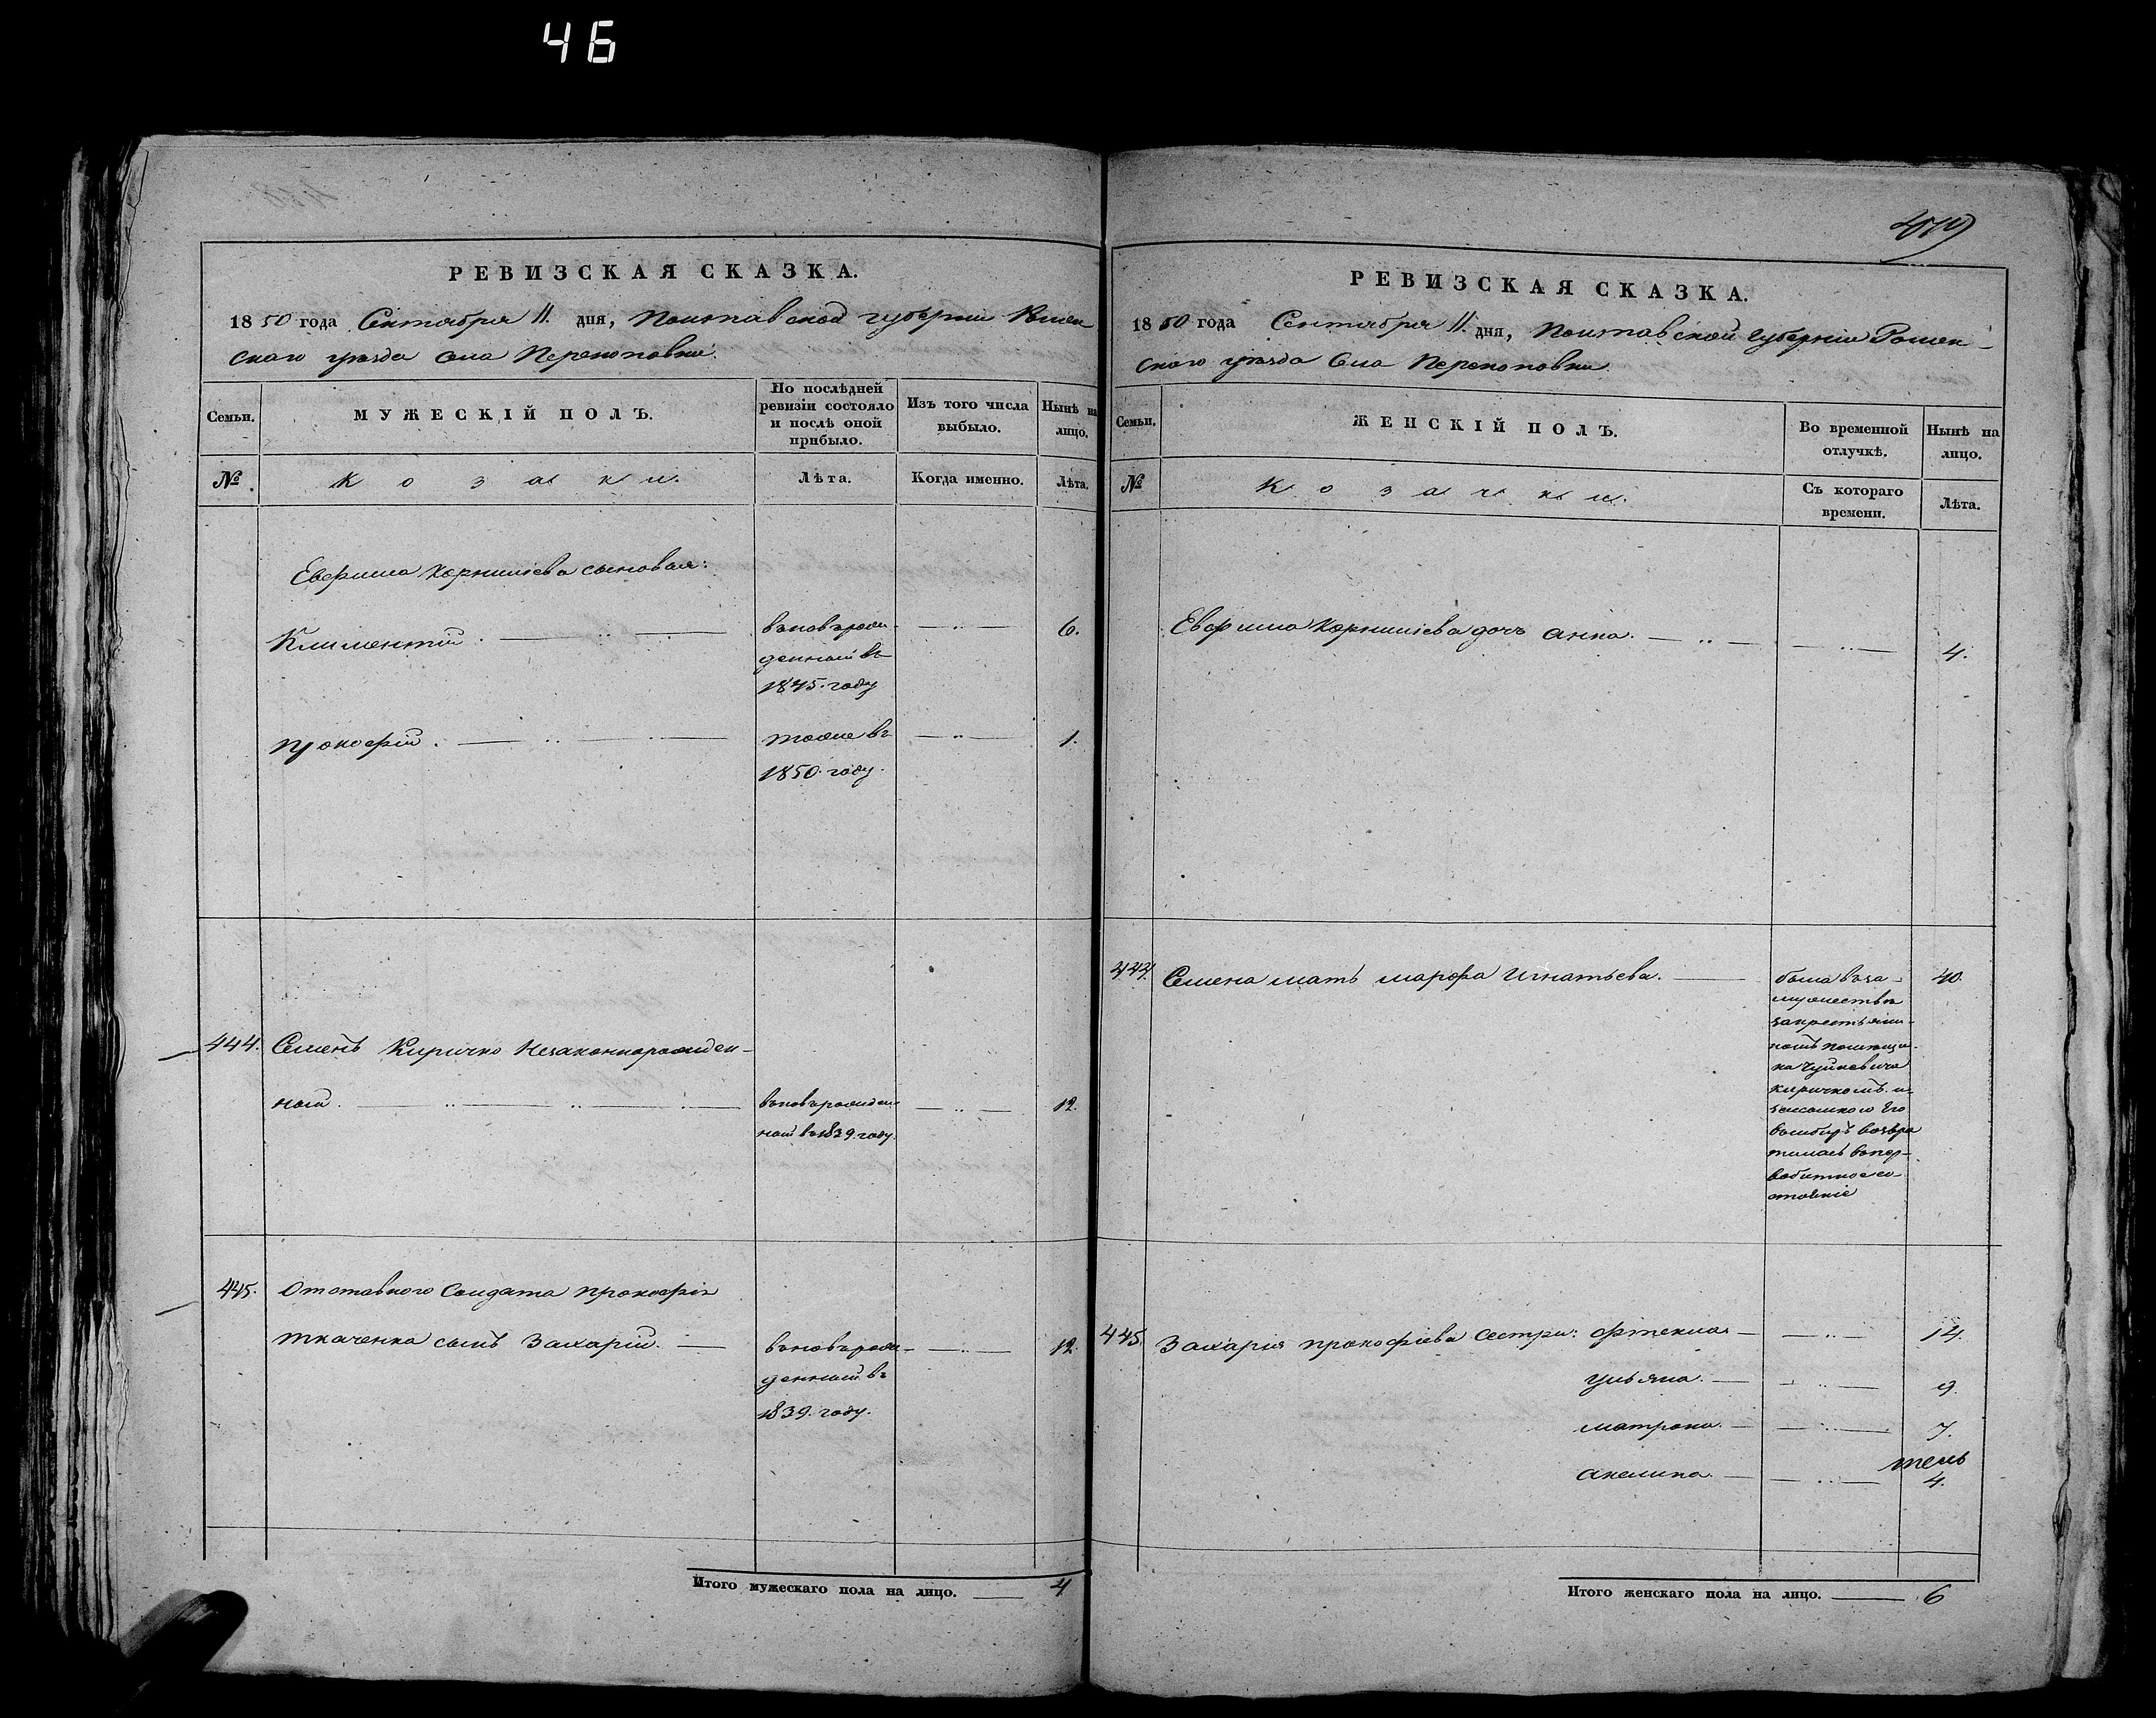 46
459
РЕВИЗСКАЯ СКАЗКА.
1850 года Сентября 11. дня, Полтавской губерніи Ромен
скаго уѣзда села Перекоповки.
Семьи.
МУЖЕСКІЙ ПОЛЪ.
По послѣдней ревизіи состояло и послѣ оной прибыло.
Изъ того числа выбыло.
Нынѣ на лицо.
№.
Козаки.
Лѣта.
Когда именно.
Лѣта.
Евфима Корнилієва сыновья:
Климентій.
вновь рож
денный въ
1845. году
6.
Прокофій.
тоже въ
1850. году.
1.
444.
Семенъ Киричко Незаконнорожден
ный.
вновь рожден
ный въ 1839. году.
12.
445.
Отставного Солдата Прокофія
Ткаченка сынъ Захарій.
вновь рож
денный въ
1839. году.
12.
Итого мужескаго пола на лицо.
4
РЕВИЗСКАЯ СКАЗКА.
1850 года Сентября 11. дня, Полтавской Губерніи Ромен-
скаго уѣзда Села Перекоповки.
Семьи.
ЖЕНСКІЙ ПОЛЪ.
Во временной отлучкѣ.
Нынѣ на лицо.
№
Козачки.
Съ котораго времени.
Лѣта.
Евфима Корнилієва дочь Анна.
4.
444.
Семена мать Марфа Игнатьева.
40.
была въ за-
мужествѣ
за крестьяни-
номъ помѣщи-
ка Чуйкевича
Киричкомъ и
возвра
тилась въ пер-
вобитное со-
стояніе
445.
Захарія Прокофіева сестри: Фтекла
14.
Ульяна.
9.
Матрона.
7.
Акелина.
4.
Итого женскаго пола на лицо.
6